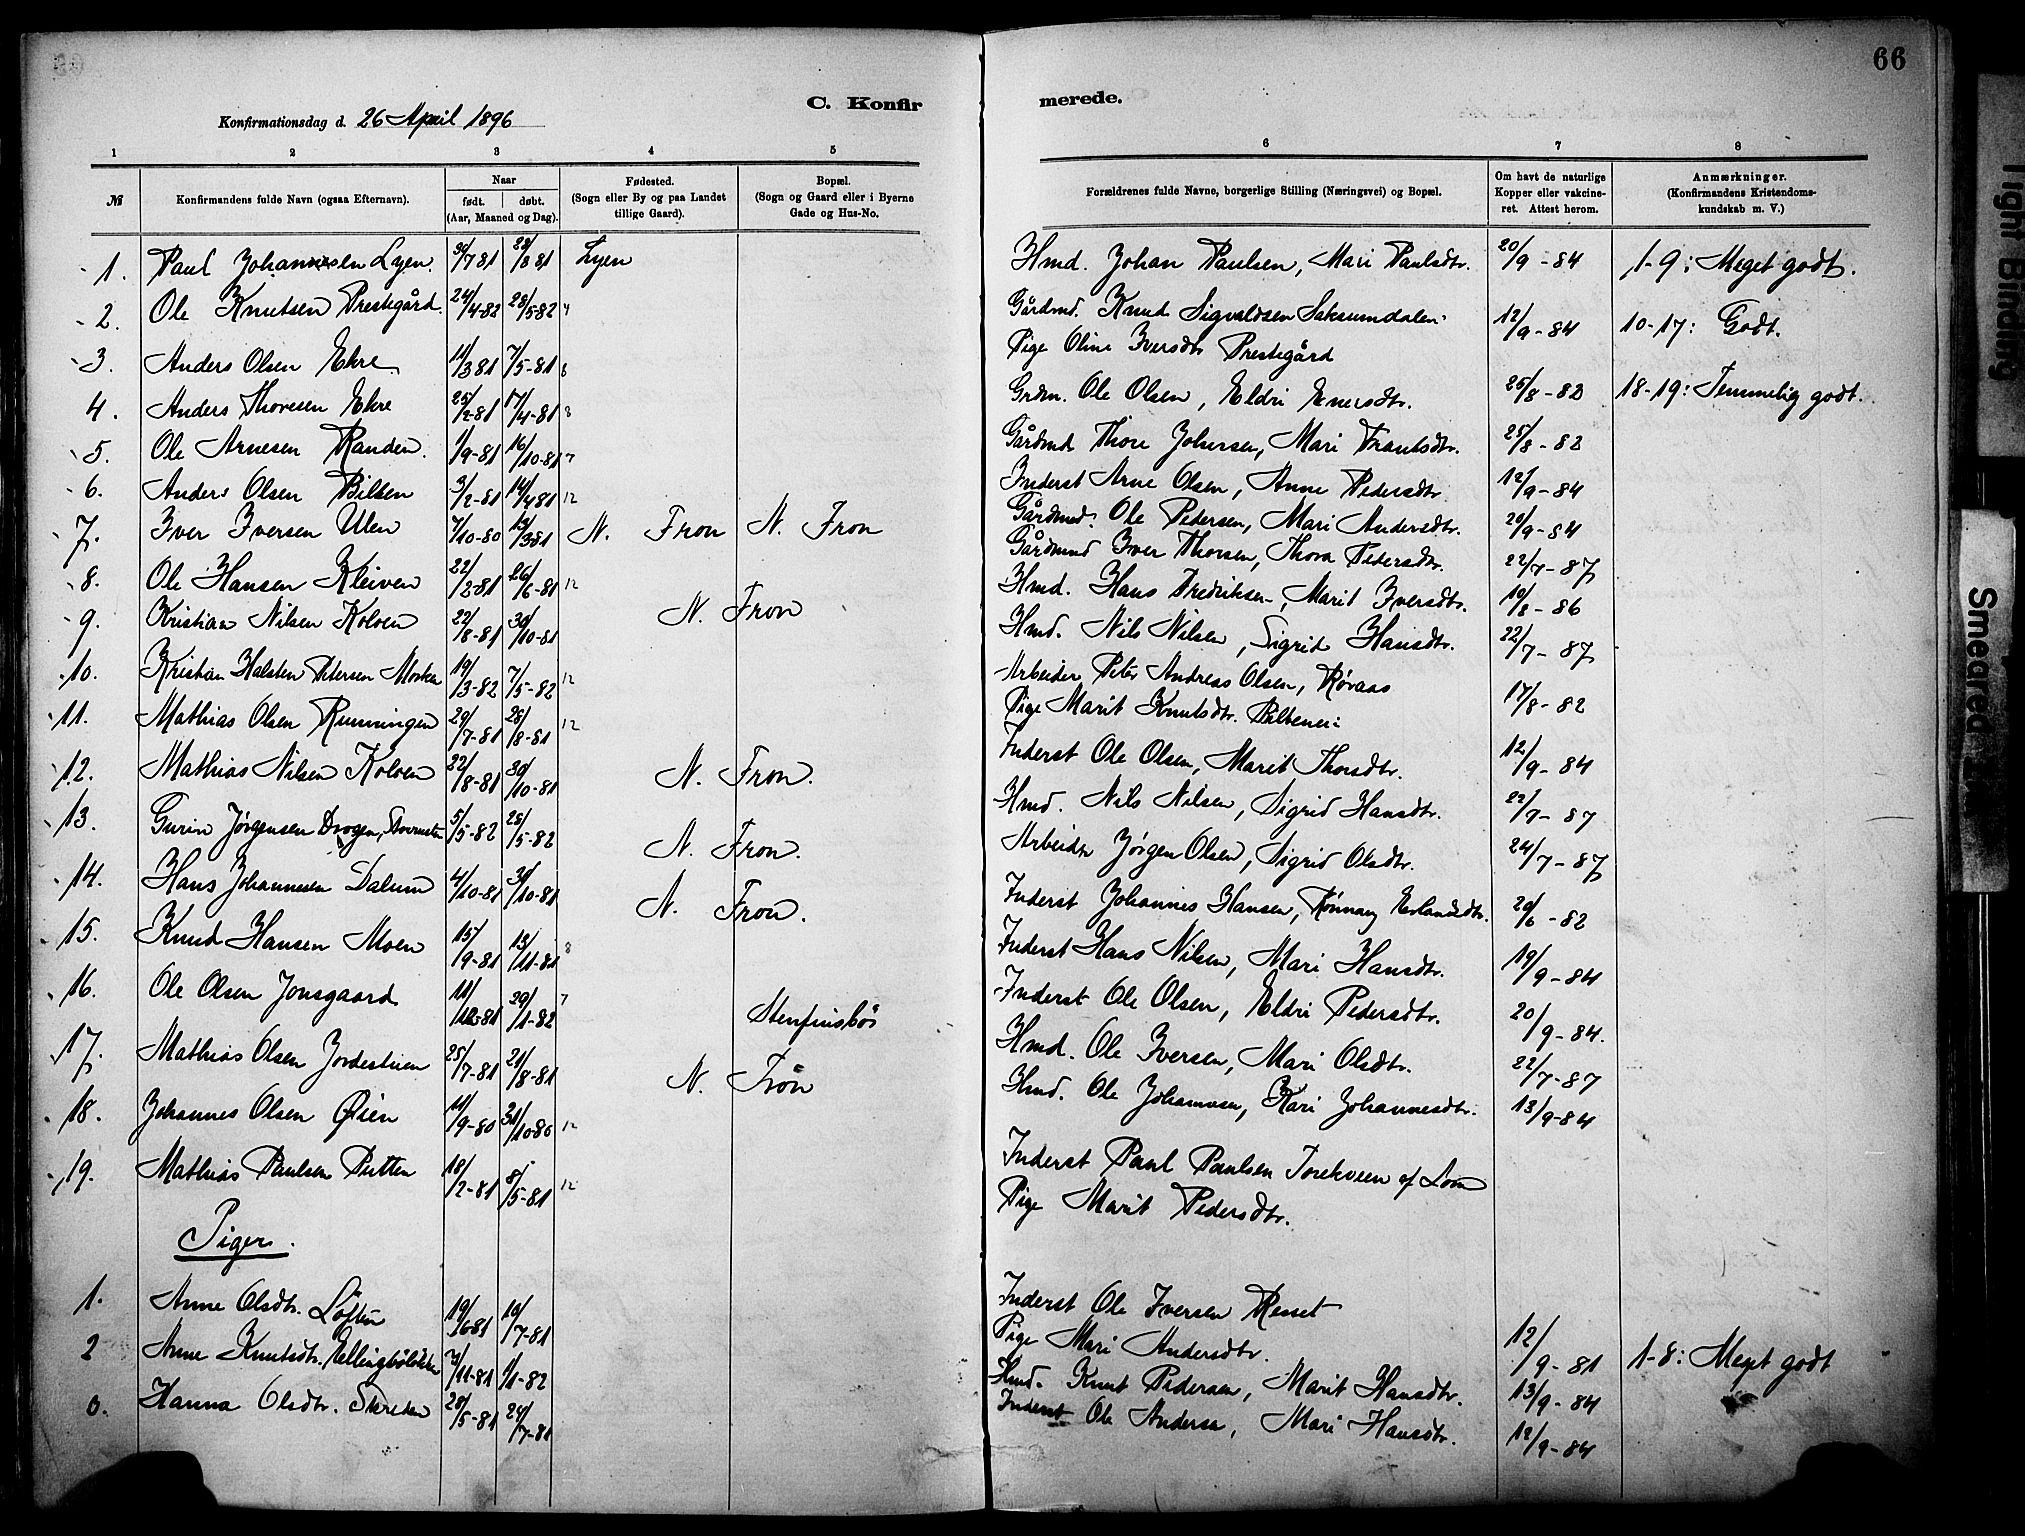 66
C. Konfirmerede.
Konfirmationsdag d. 26 April 1896
1 2 3 4 5 6 7 8
№
Konfirmandens fulde Navn (ogsaa Efternavn).
Naar
født. døbt.
(Aar, Maaned og Dag).
Fødested.
(Sogn eller By og paa Landet
tillige Gaard).
Bopæl.
(Sogn og Gaard eller i Byerne
Gade og Hus-No.
Forældrenes fulde Navne, borgerlige Stilling (Næringsvei) og Bopæl.
Om havt de naturlige
Kopper eller vakcine-
ret. Attest herom.
Anmærkninger.
(Konfirmandens Kristendoms-
kundskab m. V.)
1. Paul Johannesen Lyen. 30/7 81 28/8 81 Lyen Hmd. Johan Paulsen, Mari Paulsdtr. 20/9-84 1-9: Meget godt.
2. Ole Knutsen Prestegård. 24/4-82 28/5-82 4 Gårdmd. Knud Sigvaldsen Saksumdalen
Pige Oline Iversdtr Prestegård 12/9-84 10-17: Godt.
3. Anders Olsen Ekre 11/3 81 7/5-81 8 Grdm. Ole Olsen, Eldri Enersdtr. 25/8-82 18-19: Temmelig godt.
4. Anders Thoresen Ekre 25/2-81 17/4-81 8 Gårdmd Thore Johnsen, Mari Frantsdtr. 25/8-82
5. Ole Arnesen Randen. 1/9-81 16/10-81 7 Inderst Arne Olsen, Anne Pedersdtr. 12/9-84
6. Anders Olsen Bilben 3/2-81 14/4 81 12 Gårdmd. Ole Pedersen, Mari Andersdtr. 20/9-84
7. Iver Iversen Ulen 7/10-80 13/3 81 N. Fron N. Fron Gårdmnd Iver Thorsen, Thora Pedersdtr. 22/7-87
8. Ole Hansen Kleiven 22/2-81 26/6-81 12 Hmd. Hans Fredriksen, Marit Iversdtr. 10/8-86
9. Kristian Nilsen Kolven 22/8-81 30/10-81 N. Fron Hmd. Nils Nilsen, Sigrid Hansdtr. 22/7-87
10. Kristian Halsten Petersen Morken 19/3-82 7/5-82 12 Arbeider Peter Andreas Olsen, Røraas
Pige Marit Knutsdtr. 17/8-82
11. Mathias Olsen Rumningen 29/7-81 28/8-81 12 Inderst Ole Olsen, Marit Thorsdtr. 12/9-84
12. Mathias Nilsen Kolven 22/8-81 30/10-81 N. Fron. Hmd. Nils Nilsen, Sigrid Hansdtr. 22/7-87
13. Gurin Jørgensen 5/5-82 28/5-82 N. Fron. Arbeider Jørgen Olsen, Sigrid Olsdtr. 24/7-87
14. Hans Johannesen Dalum 4/10-81 30/10-81 N. Fron. Inderst Johannes Hansen, Rønnaug Erlandsdtr. 20/6-82
15. Knud Hansen Moen 15/9-81 13/11-81 8 Inderst Hans Nilsen, Mari Hansdtr. 19/9-84
16. Ole Olsen Jonsgaard 11/12-81 29/1-82 7 Stenfinsbø Inderst Ole Olsen, Eldri Pedersdtr. 20/9-84.
17. Mathias Olsen Jordestuen 25/7-81 21/8-81 N. Fron Hmd. Ole Iversen, Mari Olsdtr. 22/7-87
18. Johannes Olsen Øien 11/9-80 31/10-80 12 Hmd. Ole Johannesen, Kari Johannesdtr. 13/9-84
19. Mathias Paulsen Putten 18/2-81 8/5-81 12 Inderst Paul Paulsen af Lom
Pige Marit Pedersdtr.
Piger.
1. Anne Olsdtr. Løften 19/6-81 10/7-81 Inderst Ole Iversen Resset
Pige Mari Andersdtr. 12/9-81 1-8: Meget godt
2 Anne Knutsdtr. 3/11-81 1/1-82 Hmd. Knut Pedersen, Marit Hansdtr. 13/9-84
3. Hanna Olsdtr. Skreden 28/5-81 24/7-81 Inderst Ole Andersen, Mari Hansdtr. 12/9-84
Tight Binding
Smeared